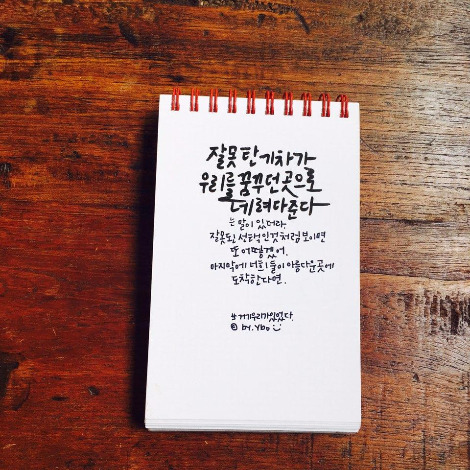 잘못 탄 기차가
우리를 꿈꾸던 곳으로
데려다준다
는 말이 있더라.
잘못된 선택인것처럼 보이면
또 어떻겠어.
마지막에 너희 둘이 아름다운 곳에
도착한다면.
#거기우리가있었다.
© by. ybo